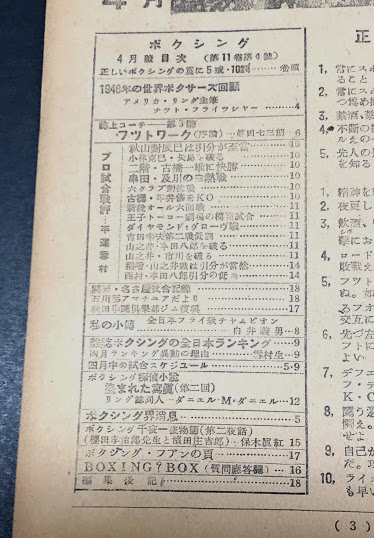 4月
ボクシング
4月號目次 (第11巻第4號)
正しいボクシングの爲に5戒・10訓……巻頭
1948年の世界ボクサーズ回顧
アメリカ・リング主筆
ナット・フライシャー
誌上コーチ——第3講
フツトワーク(序論)
6
プロ試合戰評
平澤雪村
秋山對辰巳は引分が至當 10
小林克巳・矢島を破る 10
二階・古橋一雄に快勝 10
串田・及川の熱戰 10
六クラブ對抗戰 10
古橋・平井修をKO 10
新鋭オール六回戰 11
王子トーヨー劇場の模範試合 11
ダイヤモンド・グローヴ戰 11
11
山之井・本田八郎を破る 11
山之井・市川を破る 11
稲省・山之井戰は引分が當然 14
西村・本田八郎引分の拙戰 14
関西・名古屋試合記録 18
石川縣アマチュアだより 18
18
私の小傳 全日本フライ級チャムピオン
白井義男 8
雜誌ボクシングの全日本ランキング 9
四月ランキング異動の理由 雪村生 9
四月中の試合スケジュール 5・9
ボクシング探偵小説
盗まれた寶庫(第二回)
リング誌同人 ダニエル・M・ダニエル 12
ボクシング界消息 5
ボクシング千夜一夜物語(第二夜話)
(櫻田孝治郎先生と濱田庄吉郎) 保木眞紅 15
ボクシング・フアンの頁 17
BOXING?BOX (質問應答欄) 16
編集後記 18
正
1, 常にスポ
ること
2, 常にスポ
つ爲め
3, 禁酒、禁
4, 不斷の
ルえの
5, 先人の
を知る
1, 精神を
2, 夜更し
3, 飲酒、
撃にお
4, ロード
敗戰え
5, フツト
ぬ。如
るフオ
交互に
6, 先づ左
フトに
よい
7, デフエ
フ・デ
え、ク
8, 闘う選
闘え。
せよ
9, 自己が
だ。攻
10, ライオ
も早い
( 3 )